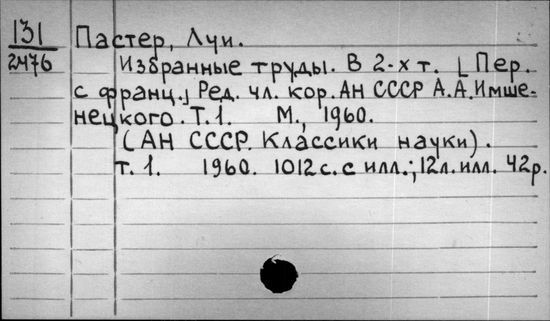 131 Пастер, Луи.
2476 Избранные труды. В 2-х т. [Пер.
с франц.] Ред. чл. кор. АН СССР А.А. Имше-
нецкого. Т.1. М., 1960.
(АН СССР. Классики науки).
т. 1. 1960. 1012 с. с илл.; 12 л. илл. 42 р.